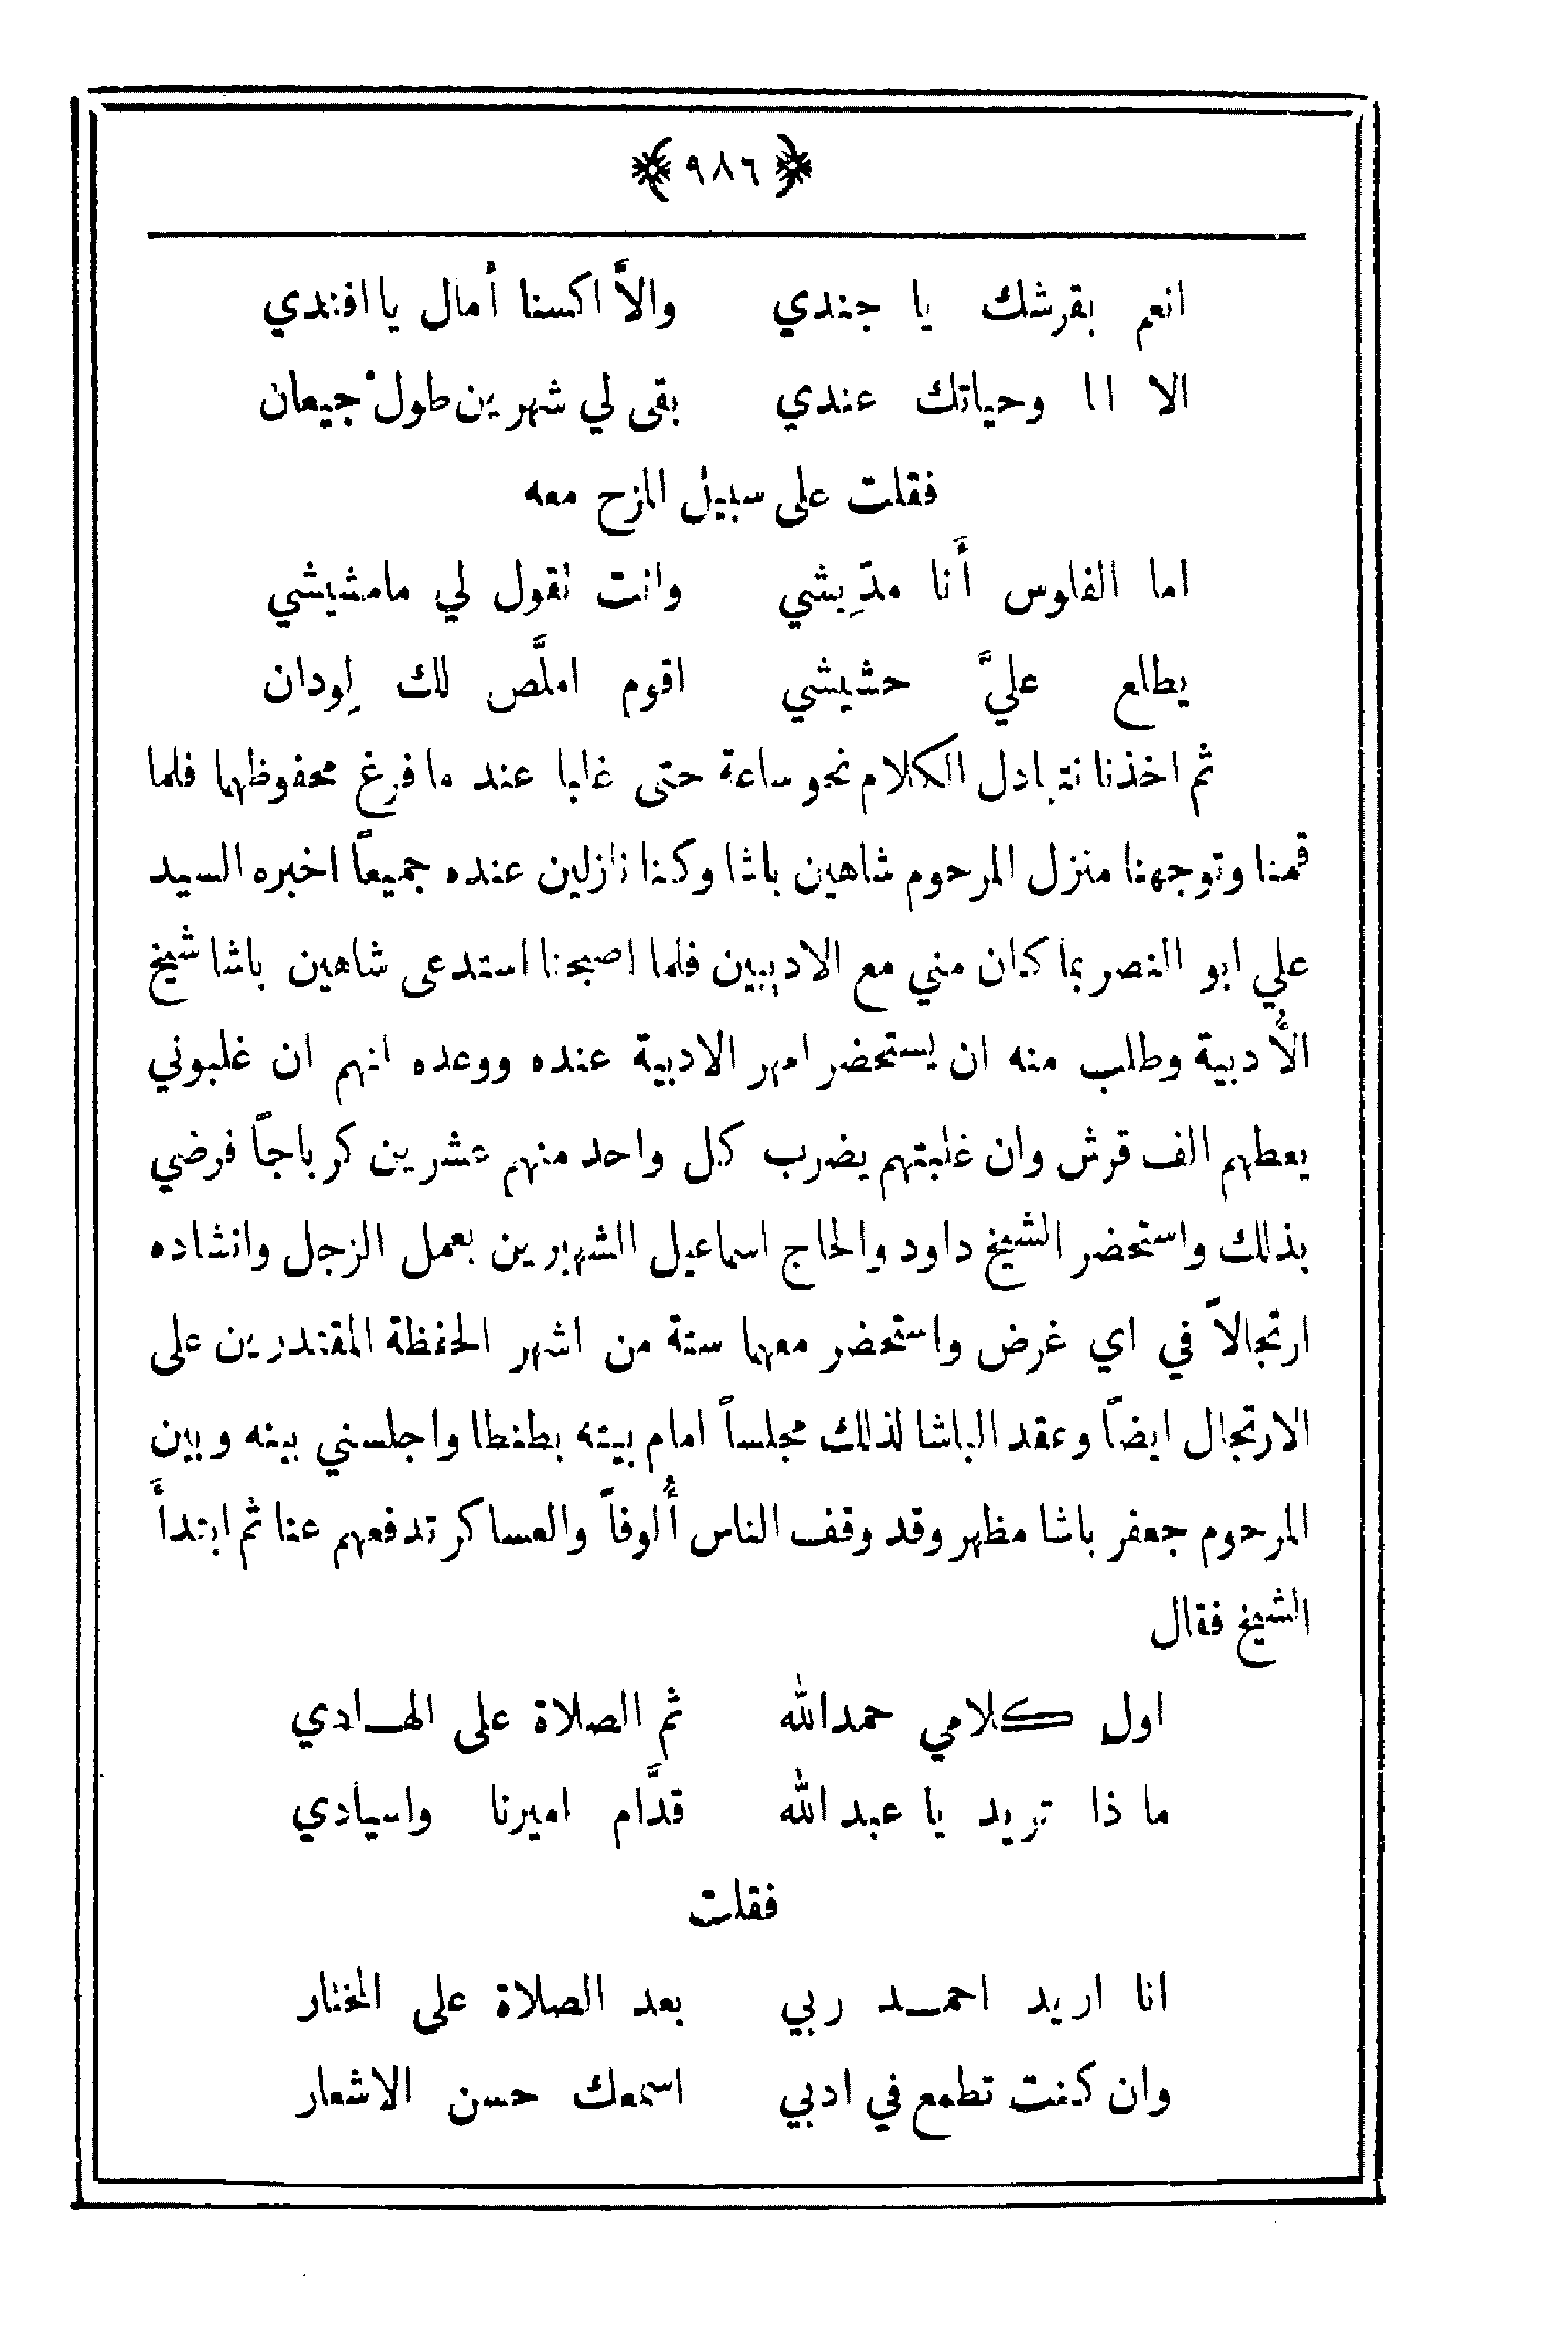 ﴿ ٩٨٦ ﴾
انعم بقرشك يا جندي والاَّ اكسنا أمال يا افندي
الا اا وحياتك عندي بقى لي شهرين طولْ جيعان
فقلت على سبيل المزح معه
اما الفلوس أَنا مدّيشي وانت نقول لي مامشيشي
يطلع عليَّ حشيشي اقوم املَّص لك لِودان
ثم اخذنا نتبادل الكلام نحو ساعة حتى غابا عند ما فرغ محفوظهما فلما
قمنا وتوجهنا منزل المرحوم شاهين باشا وكنا نازلين عنده جميعاً اخبره السيد
علي ابو النصر بما كان مني مع الاديبين فلما اصبحنا استدعى شاهين باشا شيخ
الأُدبية وطلب منه ان يستحضر امهر الادبية عنده ووعده انهم ان غلبوني
يعطهم الف قرش وان غلبتهم يضرب كل واحد منهم عشرين كرباجاً فرضي
بذلك واستحضر الشيخ داود والحاج اسماعيل الشهيرين بعمل الزجل وانشاده
ارتجالاً في اي غرض واستحضر معهما ستة من اشهر الحفظة المقتدرين على
الارتجال ايضاً وعقد الباشا لذلك مجلساً امام بيته بطنطا واجلسني بينه وبين
المرحوم جعفر باشا مظهر وقد وقف الناس أُلوفاً والعساكر تدفعهم عنا ثم ابتدأَ
الشيخ فقال
اول كلامي حمدالله ثم الصلاة على الهادي
ما ذا تريد يا عبد الله قدَّام اميرنا واسيادي
فقلت
انا اريد احمد ربي بعد الصلاة على المختار
وان كنت تطمع في ادبي اسمعك حسن الاشعار